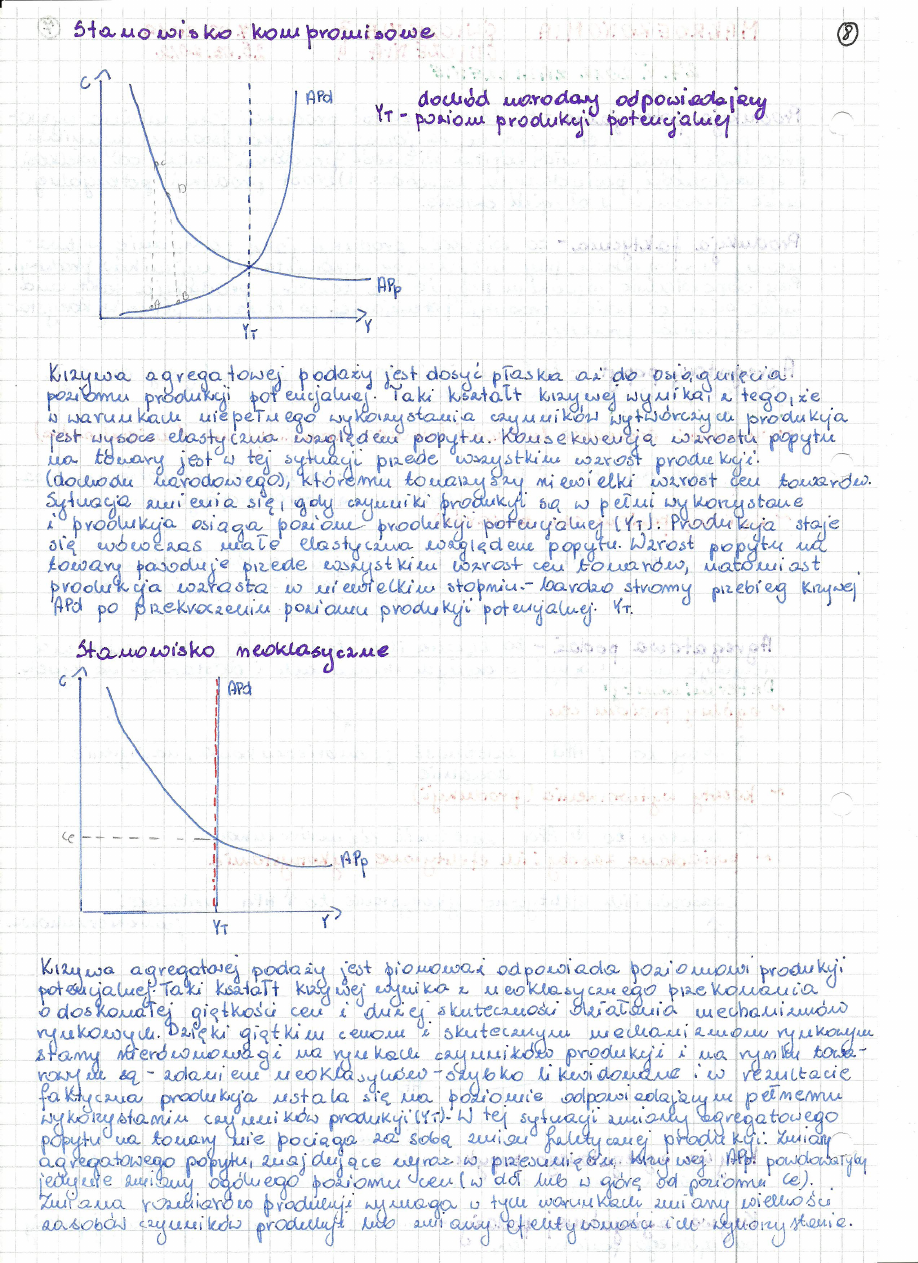 Stanowisko kompromisowe
8
C
APd
dochód narodowy odpowiadający
YT - poziom produkcji potencjalnej
C
D
A
B
APp
YT
Y
Krzywa agregatowej podaży jest dosyć płaska aż do osiągnięcia
poziomu produkcji potencjalnej. Taki kształt krzywej wynika z tego, że
w warunkach niepełnego wykorzystania czynników wytwórczych produkcja
jest wysoce elastyczna względem popytu. Konsekwencją wzrostu popytu
na towary jest w tej sytuacji przede wszystkim wzrost produkcji.
(dochodu narodowego), któremu towarzyszy niewielki wzrost cen towarów.
Sytuacja zmienia się, gdy czynniki produkcji są w pełni wykorzystane
i produkcja osiąga poziom produkcji potencjalnej (YT). Produkcja staje
się wówczas mało elastyczna względem popytu. Wzrost popytu na
towary powoduje przede wszystkim wzrost cen towarów, natomiast
produkcja wzrasta w niewielkim stopniu - bardzo stromy przebieg krzywej
APd po przekroczeniu poziomu produkcji potencjalnej. YT.
Stanowisko neoklasyczne
C
APd
Ce
APp
YT
Y
Krzywa agregatowej podaży jest pionowa i odpowiada poziomowi produkcji
potencjalnej. Taki kształt krzywej wynika z neoklasycznego przekonania
o doskonałej giętkości cen i dużej skuteczności działania mechanizmów
rynkowych. Dzięki giętkim cenom i skutecznym mechanizmom rynkowym
stany nierównowagi na rynkach czynników produkcji i na rynku towa-
rowym są - zdaniem neoklasyków - szybko likwidowane i w rezultacie
faktyczna produkcja ustala się na poziomie odpowiadającym pełnemu
wykorzystaniu czynników produkcji (YT). W tej sytuacji zmiany agregatowego
popytu na towary nie pociąga za sobą zmian faktycznej produkcji. Zmiany
agregatowego popytu, znajdujące wyraz w przesunięciu krzywej APp powodowałyby
jedynie zmiany ogólnego poziomu cen (w dół lub w górę od poziomu Ce).
Zmiana rozmiarów produkcji wymaga w tych warunkach zmiany wielkości
zasobów czynników produkcji lub zmiany efektywności ich wykorzystania.